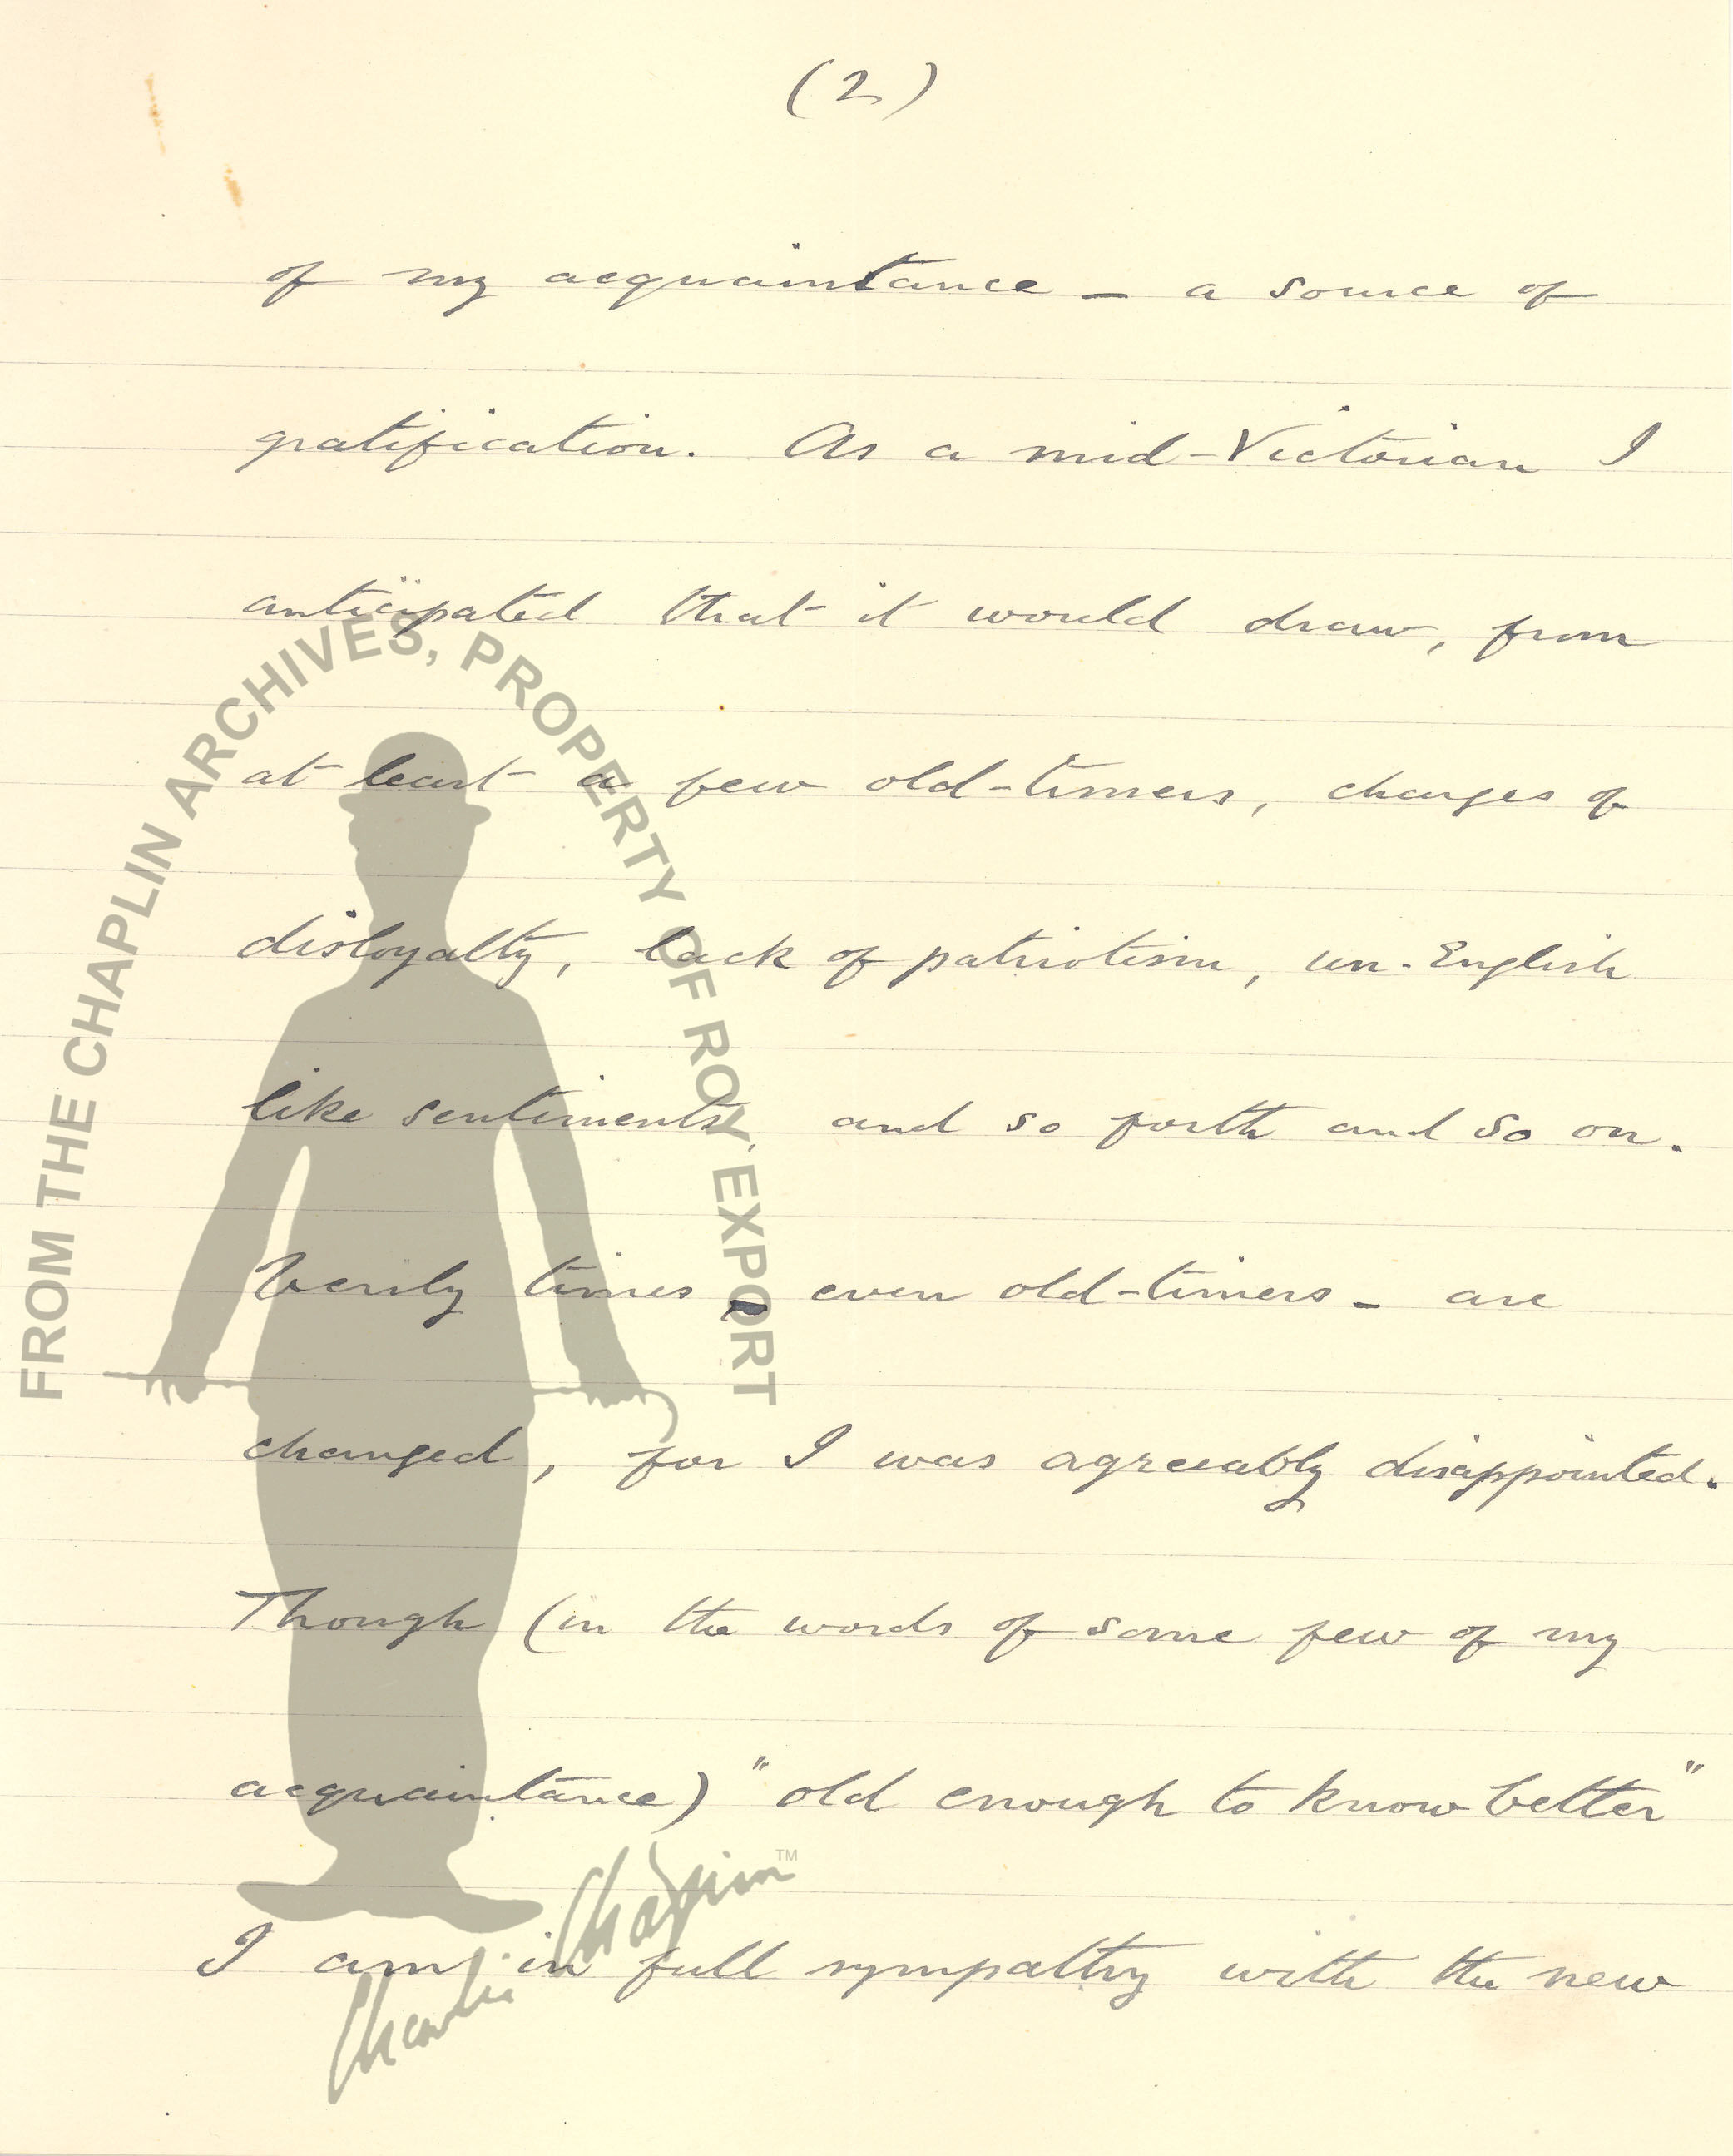 (2)
of my acquaintance - a source of
gratification. As a mid-Victorian I
anticipated that it would draw, from
at least a few old-timers, charges of
disloyalty, lack of patriotism, un-English
like sentiments, and so forth and so on.
Verily times - even old-timers - are
changed, for I was agreeably disappointed.
Though (in the words of some few of my
acquaintance) "old enough to know better"
I am in full sympathy with the new
FROM THE CHAPLIN ARCHIVES, PROPERTY OF ROY EXPORT
Charlie Chaplin TM